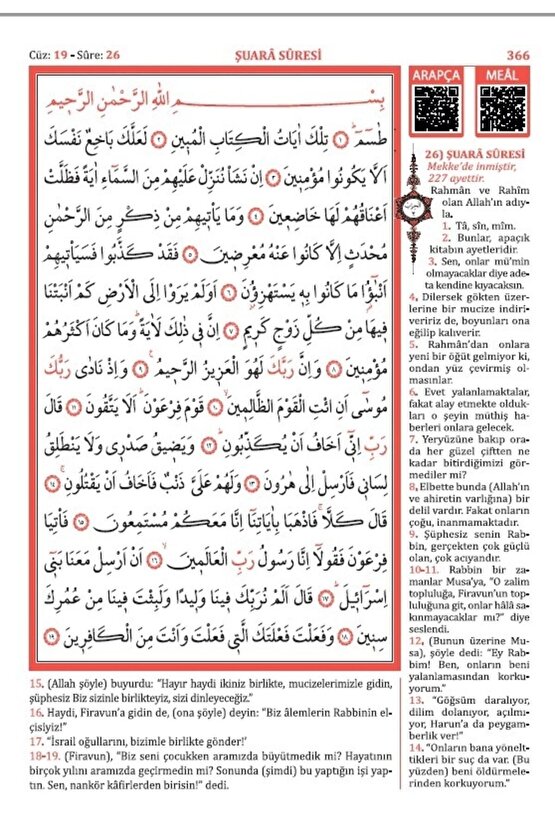 Cüz: 19 - Sûre: 26
ŞUARÂ SÛRESİ
366
بِسْــــمِ اللّٰهِ الرَّحْمٰنِ الرَّحٖيمِ
طٰسٓمٓ ﴿١﴾ تِلْكَ اٰيَاتُ الْكِتَابِ الْمُبٖينِ ﴿٢﴾ لَعَلَّكَ بَاخِعٌ نَفْسَكَ
اَلَّا يَكُونُوا مُؤْمِنٖينَ ﴿٣﴾ اِنْ نَشَأْ نُنَزِّلْ عَلَيْهِمْ مِنَ السَّمَٓاءِ اٰيَةً فَظَلَّتْ
اَعْنَاقُهُمْ لَهَا خَاضِعٖينَ ﴿٤﴾ وَمَا يَأْتٖيهِمْ مِنْ ذِكْرٍ مِنَ الرَّحْمٰنِ
مُحْدَثٍ اِلَّا كَانُوا عَنْهُ مُعْرِضٖينَ ﴿٥﴾ فَقَدْ كَذَّبُوا فَسَيَأْتٖيهِمْ
اَنْبٰٓؤُ۬ا مَا كَانُوا بِهٖ يَسْتَهْزِؤُ۫نَ ﴿٦﴾ اَوَلَمْ يَرَوْا اِلَى الْاَرْضِ كَمْ اَنْبَتْنَا
فٖيهَا مِنْ كُلِّ زَوْجٍ كَرٖيمٍ ﴿٧﴾ اِنَّ فٖي ذٰلِكَ لَاٰيَةً وَمَا كَانَ اَكْثَرُهُمْ
مُؤْمِنٖينَ ﴿٨﴾ وَاِنَّ رَبَّكَ لَهُوَ الْعَزٖيزُ الرَّحٖيمُ ﴿٩﴾ وَاِذْ نَادٰى رَبُّكَ
مُوسٰٓى اَنِ ائْتِ الْقَوْمَ الظَّالِمٖينَ ﴿١٠﴾ قَوْمَ فِرْعَوْنَ اَلَا يَتَّقُونَ ﴿١١﴾ قَالَ
رَبِّ اِنّٖٓي اَخَافُ اَنْ يُكَذِّبُونِ ﴿١٢﴾ وَيَضٖيقُ صَدْرٖي وَلَا يَنْطَلِقُ
لِسَانٖي فَاَرْسِلْ اِلٰى هٰرُونَ ﴿١٣﴾ وَلَهُمْ عَلَيَّ ذَنْبٌ فَاَخَافُ اَنْ يَقْتُلُونِ ﴿١٤﴾
قَالَ كَلَّا فَاذْهَبَا بِاٰيَاتِنَٓا اِنَّا مَعَكُمْ مُسْتَمِعُونَ ﴿١٥﴾ فَأْتِيَا
فِرْعَوْنَ فَقُولَٓا اِنَّا رَسُولُ رَبِّ الْعَالَمٖينَ ﴿١٦﴾ اَنْ اَرْسِلْ مَعَنَا بَنٖٓي
اِسْرَٓائٖلَ ﴿١٧﴾ قَالَ اَلَمْ نُرَبِّكَ فٖينَا وَلٖيدًا وَلَبِثْتَ فٖينَا مِنْ عُمُرِكَ
سِنٖينَ ﴿١٨﴾ وَفَعَلْتَ فَعْلَتَكَ الَّتٖي فَعَلْتَ وَاَنْتَ مِنَ الْكَافِرٖينَ ﴿١٩﴾
ARAPÇA
MEÂL
26) ŞUARÂ SÛRESİ
Mekke'de inmiştir,
227 ayettir.
Rahmân ve Rahîm
olan Allah'ın adıy-
la.
1. Tâ, sîn, mîm.
2. Bunlar, apaçık
kitabın ayetleridir.
3. Sen, onlar mü'min
olmayacaklar diye ade-
ta kendine kıyacaksın.
4. Dilersek gökten üzer-
lerine bir mucize indiri-
veririz de, boyunları ona
eğilip kalıverir.
5. Rahmân'dan onlara
yeni bir öğüt gelmiyor ki,
ondan yüz çevirmiş ol-
masınlar.
6. Evet yalanlamaktalar,
fakat alay etmekte olduk-
ları o şeyin müthiş ha-
berleri onlara gelecek.
7. Yeryüzüne bakıp ora-
da her güzel çiftten ne
kadar bitirdiğimizi gör-
mediler mi?
8. Elbette bunda (Allah'ın
ve ahiretin varlığına) bir
delil vardır. Fakat onların
çoğu, inanmamaktadır.
9. Şüphesiz senin Rab-
bin, gerçekten çok güçlü
olan, çok acıyandır.
10-11. Rabbin bir za-
manlar Musa'ya, "O zalim
topluluğa, Firavun'un top-
luluğuna git, onlar hâlâ sa-
kınmayacaklar mı?" diye
seslendi.
12. (Bunun üzerine Mu-
sa), şöyle dedi: "Ey Rab-
bim! Ben, onların beni
yalanlamasından korku-
yorum."
13. "Göğsüm daralıyor,
dilim dolanıyor, açılmı-
yor, Harun'a da peygam-
berlik ver!"
14. "Onların bana yönelt-
tikleri bir suç da var. (Bu
yüzden) beni öldürmele-
rinden korkuyorum."
15. (Allah şöyle) buyurdu: "Hayır haydi ikiniz birlikte, mucizelerimizle gidin,
şüphesiz Biz sizinle birlikteyiz, sizi dinleyeceğiz."
16. Haydi, Firavun'a gidin de, (ona şöyle) deyin: "Biz âlemlerin Rabbinin el-
çisiyiz!"
17. "İsrail oğullarını, bizimle birlikte gönder!'
18-19. (Firavun), "Biz seni çocukken aramızda büyütmedik mi? Hayatının
birçok yılını aramızda geçirmedin mi? Sonunda (şimdi) bu yaptığın işi yap-
tın. Sen, nankör kâfirlerden birisin!" dedi.